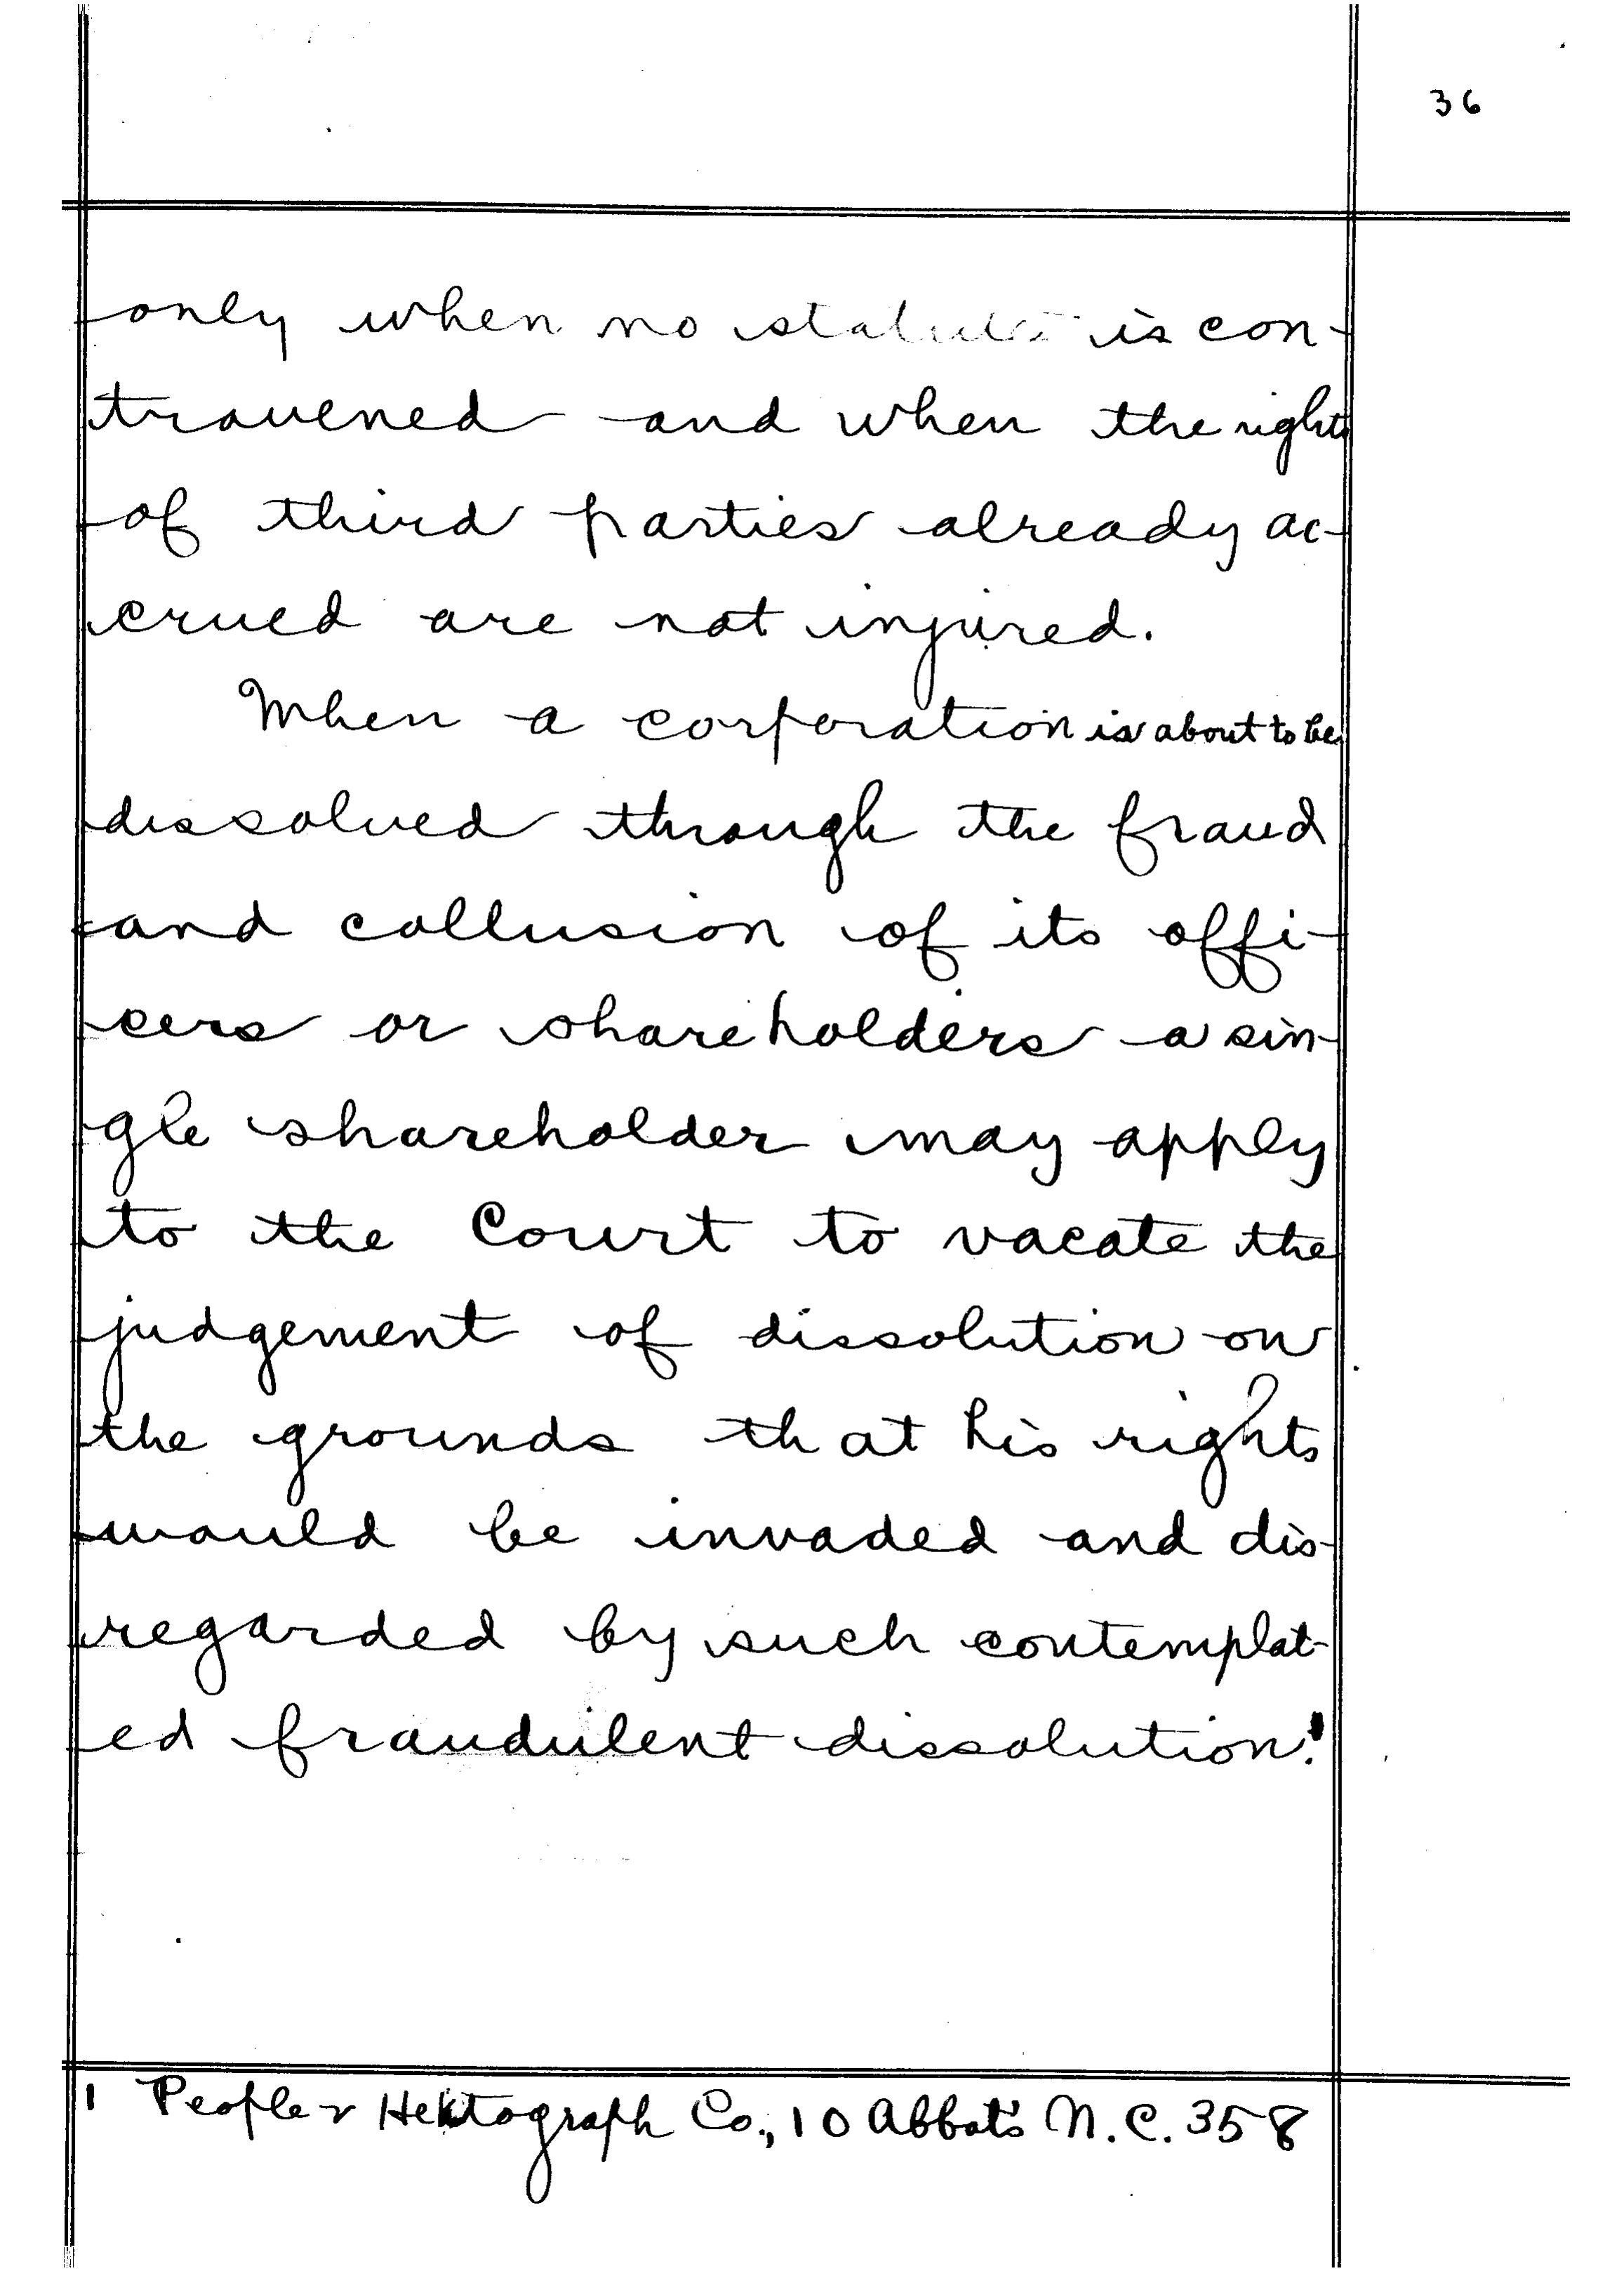 36
only when no statute is con-
travened and when the rights
of third parties already ac-
crued are not injured.
When a corporation is about to be
dissolved through the fraud
and collusion of its offi-
cers or shareholders a sin-
gle shareholder may apply
to the Court to vacate the
judgement of dissolution on
the grounds that his rights
would be invaded and dis-
regarded by such contemplat-
ed fraudulent dissolution.1
1 People v Hektograph Co., 10 Abbot's N.C. 358